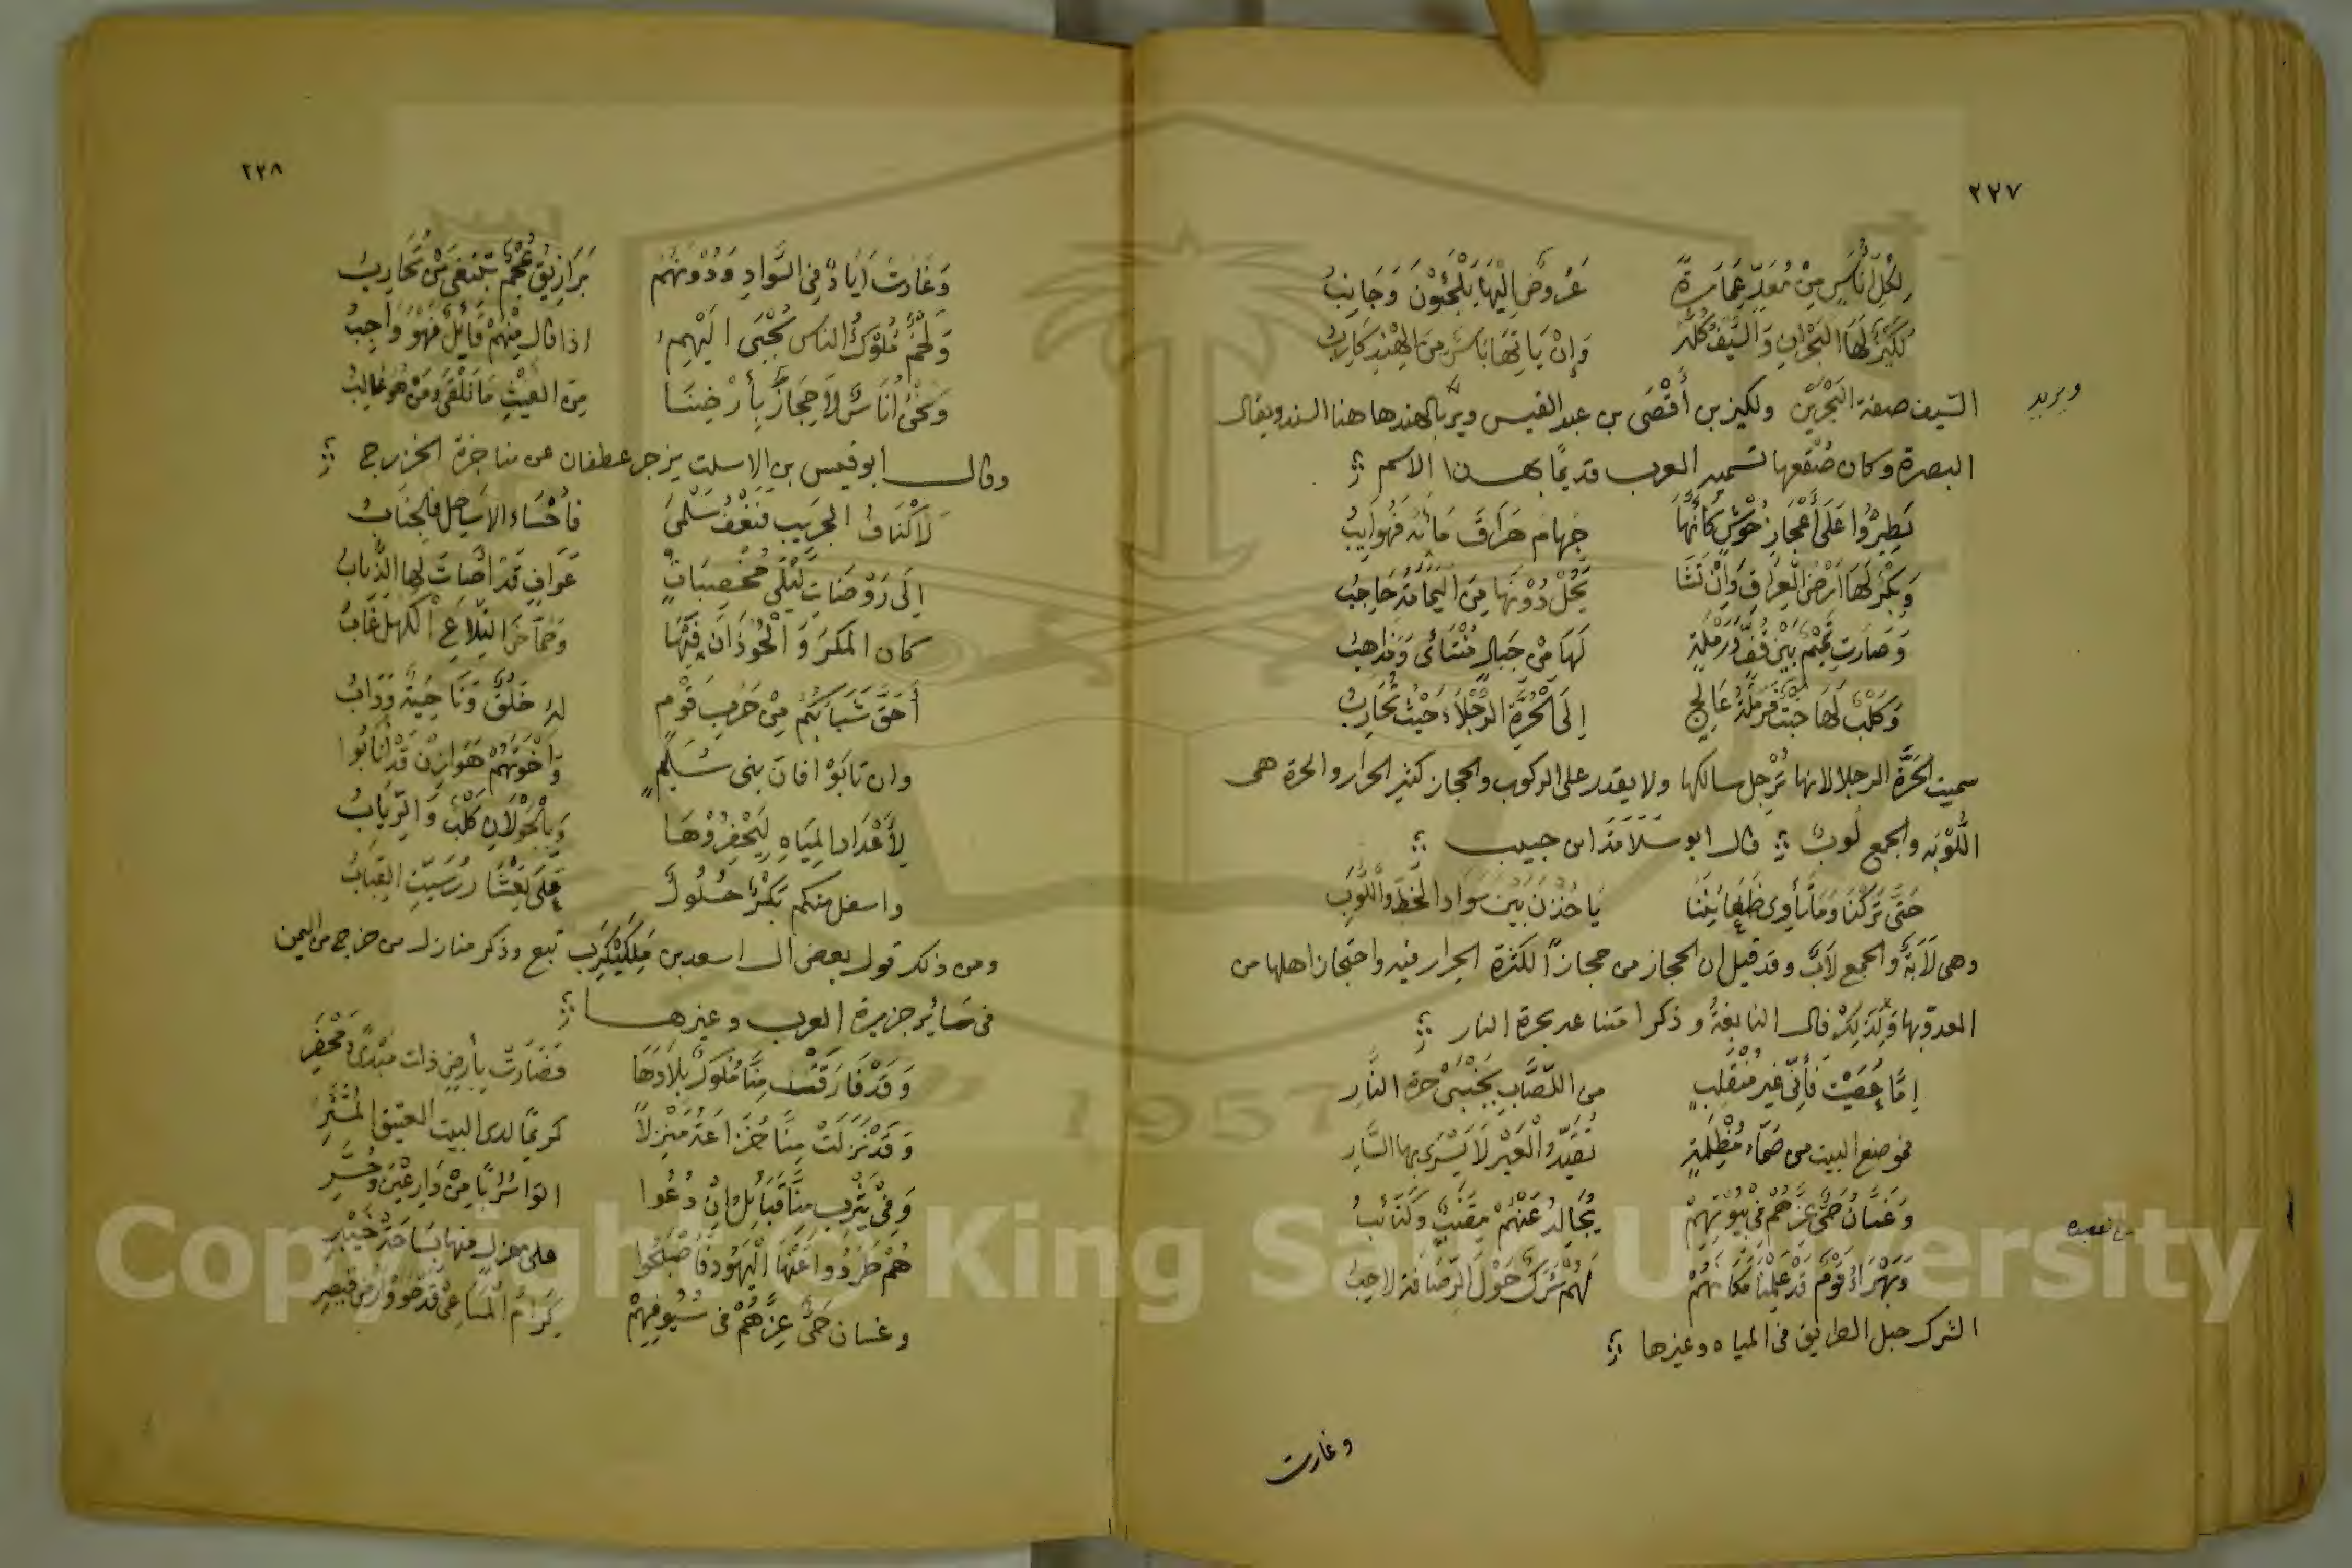 ٢٢٧
لِكُلِّ أُنَاسٍ مِنْ مُعَدٍّ عِمَارَةٌ عَرُوضٌ إِلَيْهَا يَلْجَئُونَ وَجَانِبُ
لُكَيْزٌ لَهَا البَحْرانِ وَالسَّيْفُ كُلُّهُ وَإِنْ يَاتِهَا بَاسٌ مِنَ الهِنْدِ كَارِبُ
السّيف صفة البَحْرَيْن ولكيز بن أَفْصَى بن عبد القيس ويرد بالهند ها هنا السند ويقال
ويريد
البصرة وكان صُقعها تسميه العرب قديمًا بهذا الاسم
تَطِيرُوا عَلَى أَعْجَازِ حُوشٍ كَأَنَّهَا جَهامٌ هَرَاقَ مَائَهُ فَهُوَ ايِبُ
وَبَكْرٌ لَهَا أَرْضُ الْعِرَاقِ وَإِنْ تَشَا يَحُلْ دُوْنَهَا مِنَ الْيَمَامَةِ حَاجِبُ
وَصَارَت تَمِيْمٌ بَيْنَ قُفٍّ وَرَمْلَةٍ لَهَا مِنْ جِبَالٍ مُنْتَائً وَمَذَاهِبُ
وَكَلْبٌ لَهَا خَبْتٌ فَرَمْلَةُ عَالِجٍ اِلَى الْحَرَّةِ الرَّجْلَاءِ حَيْثُ تُحَارِبُ
سميت الحَرَّة الرجلا لانها تُرْجِل سالكها ولا يقدر على الركوب والحجاز كثير الحرار والحرة هى
اللُّوْبَه والجمع لُوبٌ قال ابو سَلَامَة ابن جبيب
حَتَّى تَرَكْنَا وَمَا تأوى ظَعَائِنُنَا يَاخُذْنَ بَيْنَ سَوَادِ الخَطِّ وَاللُّوَبِ
وهى لَابَةٌ والجمع لَابٌ وقد قيل ان الحجاز من حجازاً لكثرة الحرار فيه واحتجاز اهلها من
العدو بها وَلِذَلِكَ قال النابغةُ وذكر امتناعه بحرة النار
اِمَّا عُصِيْتَ فَأِنِّى غير مُنْقَلِبٍ من اللِّصَابِ بِجَنْبَىْ حرة النَّارِ
فموضع البيت من صَمَّاءِ مُظْلِمَةٍ تُقَيِّدُ الْعَيْرَ لَا يَسْرِى بها السَّارِ
وَغَسَّانُ حَىٌّ عِزُّهُمْ فِى بُيُوتِهِمْ يُجَالِدُ عَنْهُمْ مِقْنَبٌ وَكَتَائِبُ
وَبَهْرَاءُ قَوْمٌ قَدْ عَلِمْنَا مَكَانَهُمْ لَهُمْ شَرَكٌ حَوْلَ الرِّصَافَةِ لاحِبُ
الشرك حبل الطريق فى المياه وغيرها
وغارت
٢٢٨
وَغَارَتْ اَيَادٌ فِى السَّوَادِ وَدُوْنَهُمْ بَرَازِيْقُ عُجْمٌ تَبْتَغِى مَنْ تُحَارِبُ
وَلَخْمٌ مُلُوْكُ الناس تُجْبَى اِلَيْهِمُ اذا قال مِنْهُمْ قَائِلٌ فَهْوَ وَاجِبُ
وَنَحْنُ اُنَاسٌ لَا حِجَازَ بِأَرْضِنَا مِنَ الغَيْثِ مَا نَلْقَى وَمَنْ هُوَ غَالِبُ
وقال ابو قيس بن الاسلت يزجر غطفان عن مناجزة الخزرج
لَأَكْنَافُ الجَرِيبِ فَنَعْفُ سَلْمَى فأَحْسَاءُ الاسَاحِل فالجَنَابُ
اِلَى رَوْضَاتِ لَيْلَى مُخْصِبَاتٌ عَوَافٍ قَدْ اَصَاتَ لها الذُّبابُ
كان المَكرَ وَالْحُوْذَانَ فِيْهَا وَحُمَّاضَ التِّلَاعِ الْكهل غَابُ
أَحَقُّ شَبَابَكُمْ مِنْ حَرْبِ قَوْمٍ لهُ خلقٌ وَنَاحِيَةٌ وَدَابُ
وان تابَوْا فانَّ بنى سُلَيْمٍ وَاَخْوَتَهُمْ هَوَازِنَ قَدْ أَنَابُوا
لِأَعْدَادِ المِيَاهِ لِيَحْفِرُوْهَا وَبِالْجَوْلَانِ كَلْبٌ وَالرِّبَابُ
واسفل منكم بَكْرًا حُلُولًا عَلَى تِعْشَارَ رُسِّيَتِ القِبَابُ
ومن ذلك قول بعض ال اسعد بن مَلِكَيْكَرِب تبع وذكر منازل من خرج من اليمن
فى سَائر جزيرة العرب وغيرها
وَقَدْ فَارَقَتْ مِنَّا مُلُوكٌ بِلَادَهَا فَصَارَتْ بِأَرضٍ ذات مَبْدًى وَمَحْضَرِ
وَقَدْ نَزَلَتْ مِنَّا خُزَاعَةُ مَنْزِلًا كريمًا لدى البيت العتيق المُسَتَّرِ
وَفِىْ يَثْرِبٍ مِنَّا قَبَائِلُ اِنْ دُعُوا اتوا سُرُبًا مِنْ دَارِعَيْنَ وَحُسَّرِ
هُمْ طَرَدُوا عَنْهَا الْيَهُودَ فَأَصْبَحُوا على معزل منها بِسَاحَةِ خَيْبَرِ
وغسان حَىٌّ عِزُّهُمْ فى سُيُوفِهِمْ كِرَامُ الْمَسَاعِى قد حَوَوْا ارض قيصرِ
Copyright © King Saud University
1957